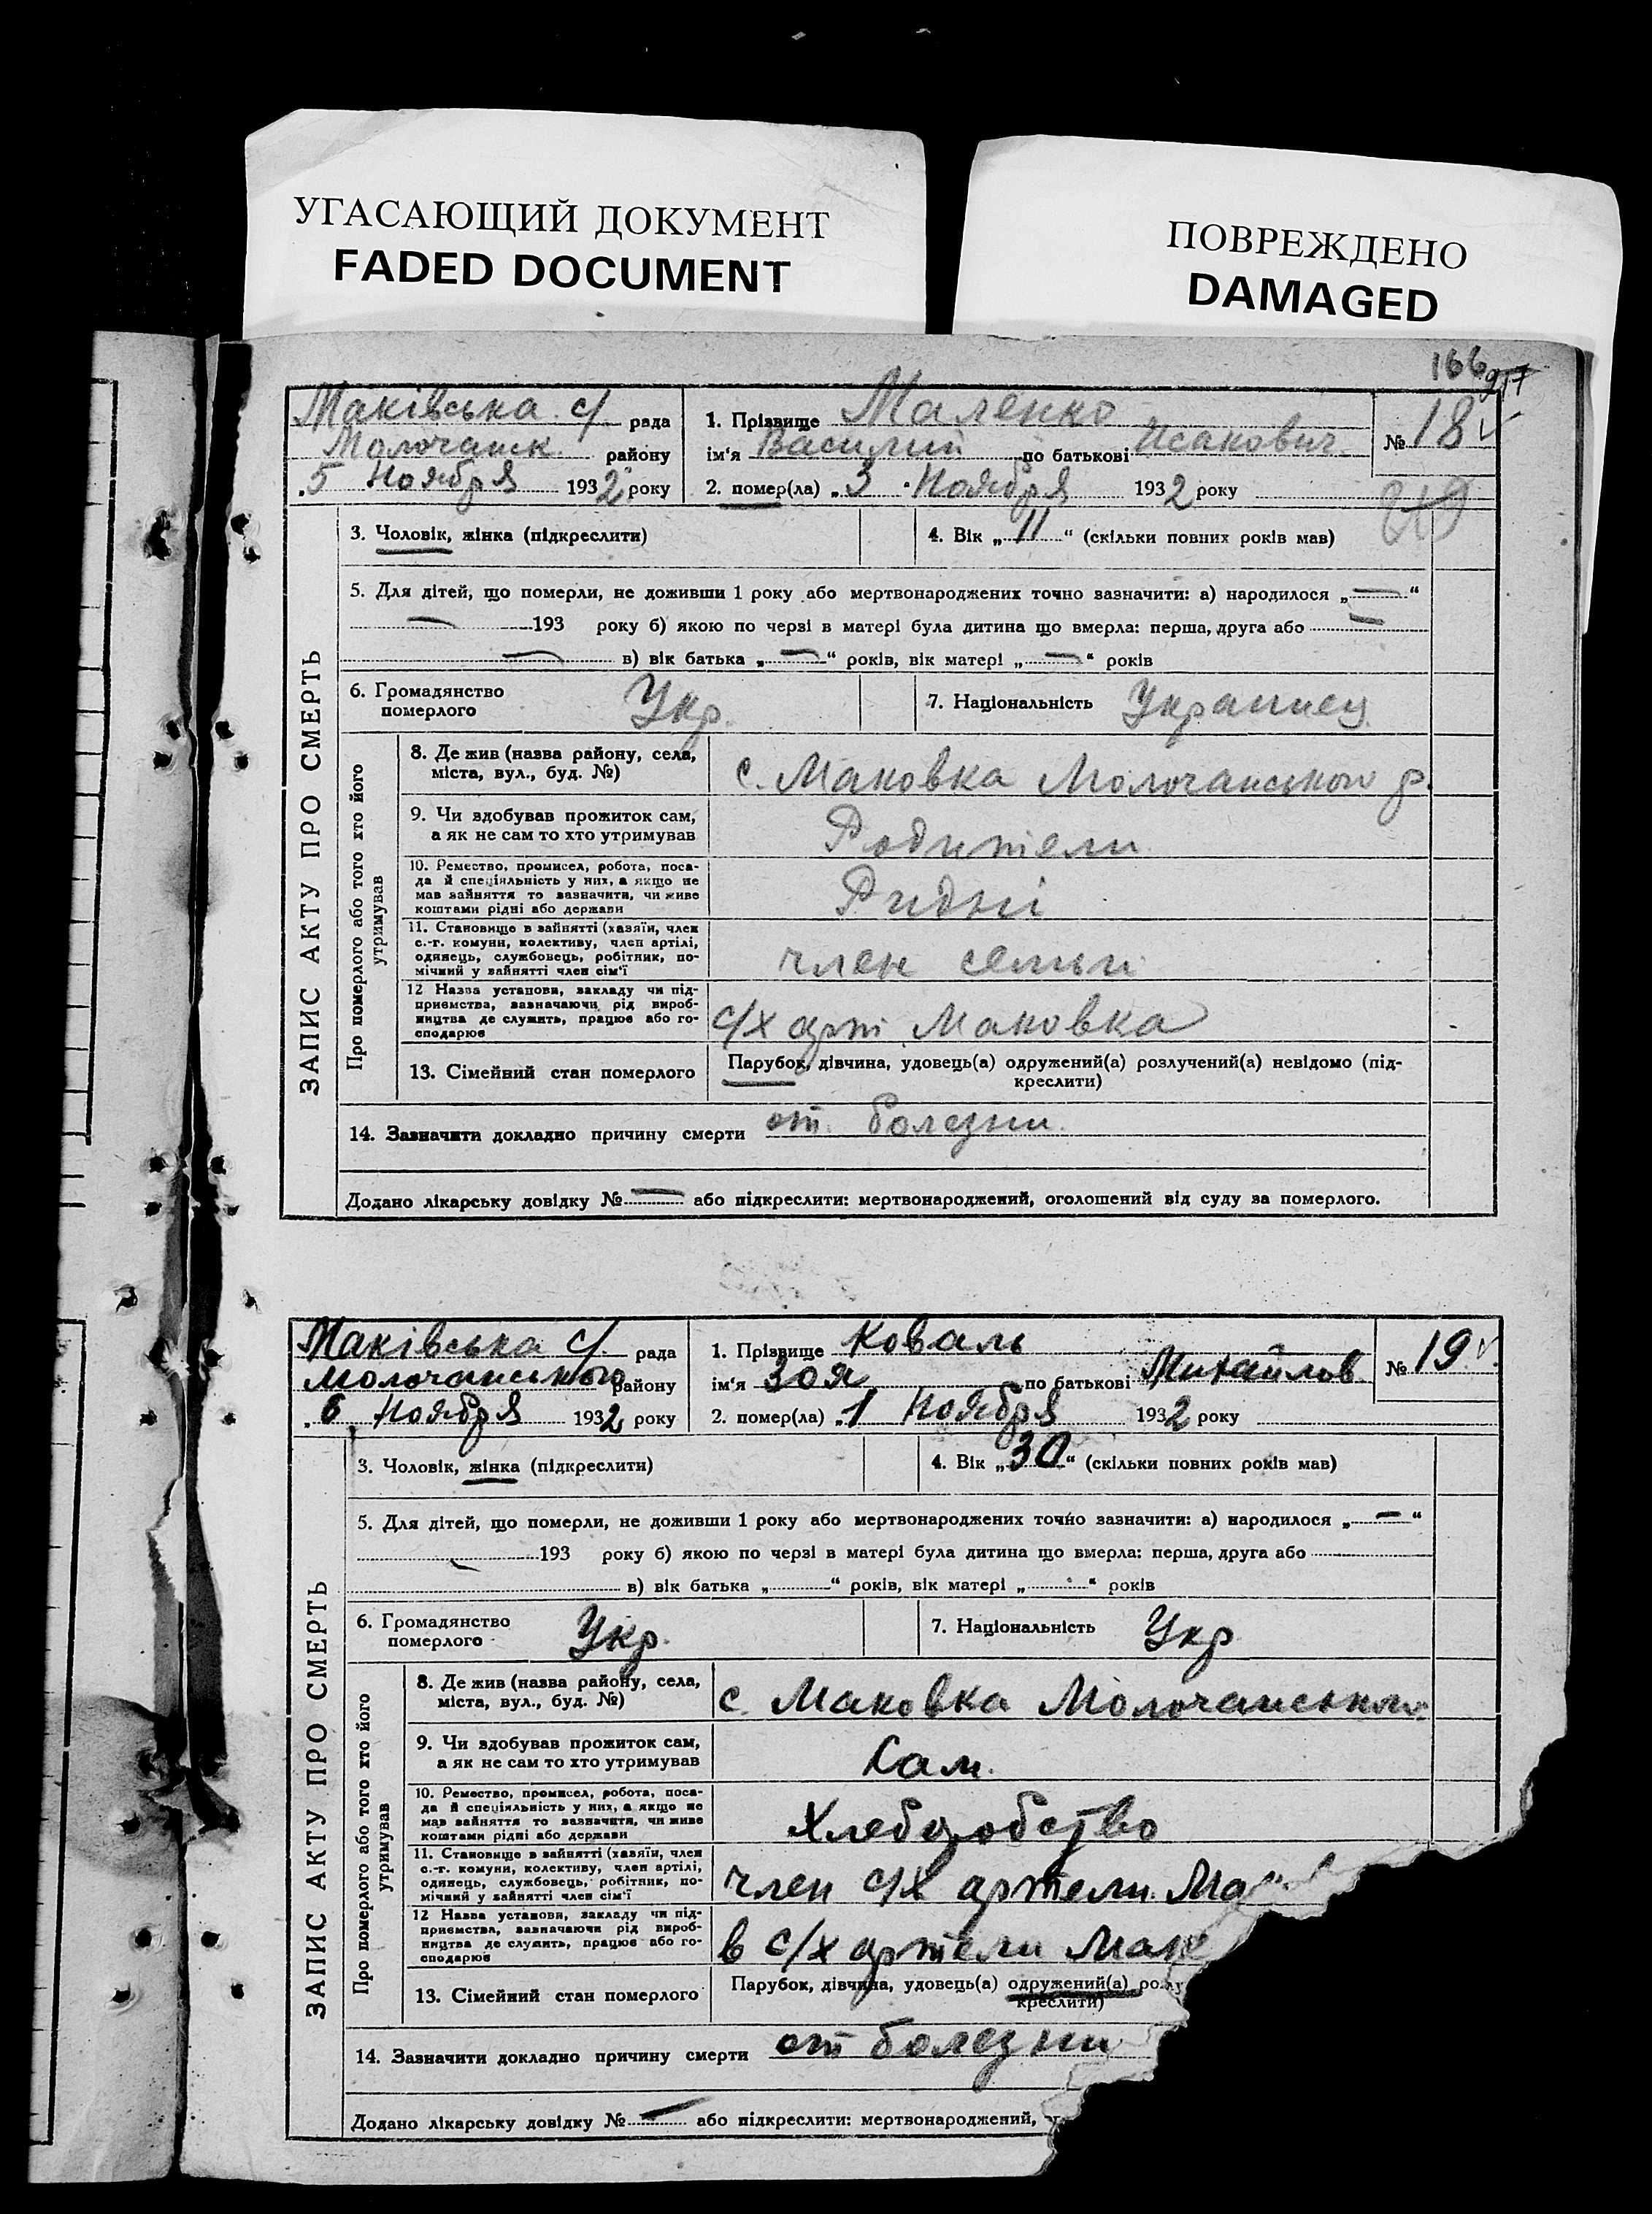 УГАСАЮЩИЙ ДОКУМЕНТ
FADED DOCUMENT
ПОВРЕЖДЕНО
DAMAGED
166
917
Маківська с/ рада
Молочанск. району
„5 Ноября 1932 року
1. Прізвище Маленко
ім‘я Василий по батькові Исакович
2. помер(ла) „3 “ Ноября 1932 року
№ 18
ЗАПИС АКТУ ПРО СМЕРТЬ
3. Чоловік, жінка (підкреслити)
4. Вік „11“ (скільки повних років мав)
5. Для дітей, що померли, не доживши 1 року або мертвонароджених точно зазначити: а) народилося „—“
— 193 року б) якою по черзі в матері була дитина що вмерла: перша, друга або —
— в) вік батька „—“ років, вік матері „—“ років
6. Громадянство
померлого
Укр.
7. Національність Украинец
Про померлого або того хто його
утримував
8. Де жив (назва району, села,
міста, вул., буд. №)
с. Маковка Молочанського р.
9. Чи здобував прожиток сам,
а як не сам то хто утримував
Родители
10. Ремество, промисел, робота, поса-
да й спеціяльність у них, а якщо не
мав зайняття то зазначити, чи живе
коштами рідні або держави
Ридні
11. Становище в зайнятті (хазяїн, член
с.-г. комуни, колективу, член артілі,
одинець, службовець, робітник, по-
мічний у зайнятті член сім‘ї
член семьи
12 Назва установи, закладу чи під-
приємства, зазначаючи рід вироб-
ництва де служить, працює або го-
сподарює
с/х арт Маковка
13. Сімейний стан померлого
Парубок, дівчина, удовець(а) одружений(а) розлучений(а) невідомо (під-
креслити)
14. Зазначити докладно причину смерти от болезни.
Додано лікарську довідку №— або підкреслити: мертвонароджений, оголошений від суду за померлого.
Маківська с/. рада
Молочанського району
„6 Ноября 1932 року
1. Прізвище Коваль
ім‘я Зоя по батькові Михайлов.
2. помер(ла) „1 Ноября 1932 року
№ 19
ЗАПИС АКТУ ПРО СМЕРТЬ
3. Чоловік, жінка (підкреслити)
4. Вік „30“ (скільки повних років мав)
5. Для дітей, що померли, не доживши 1 року або мертвонароджених точно зазначити: а) народилося „—“
193 року б) якою по черзі в матері була дитина що вмерла: перша, друга або
в) вік батька „ “ років, вік матері „ “ років
6. Громадянство
померлого
Укр.
7. Національність Укр
Про померлого або того хто його
утримував
8. Де жив (назва району, села,
міста, вул., буд. №)
с. Маковка Молочанського
9. Чи здобував прожиток сам,
а як не сам то хто утримував
Сам.
10. Ремество, промисел, робота, поса-
да й спеціяльність у них, а якщо не
мав зайняття то зазначити, чи живе
коштами рідні або держави
11. Становище в зайнятті (хазяїн, член
с.-г. комуни, колективу, член артілі,
одинець, службовець, робітник, по-
мічний у зайнятті член сім‘ї
член с/х артели Ма
12 Назва установи, закладу чи під-
приємства, зазначаючи рід вироб-
ництва де служить, працює або го-
сподарює
в с/х артели Мак
13. Сімейний стан померлого
Парубок, дівчина, удовець(а) одружений(а) роз
креслити)
14. Зазначити докладно причину смерти от болезни
Додано лікарську довідку №— або підкреслити: мертвонароджений,